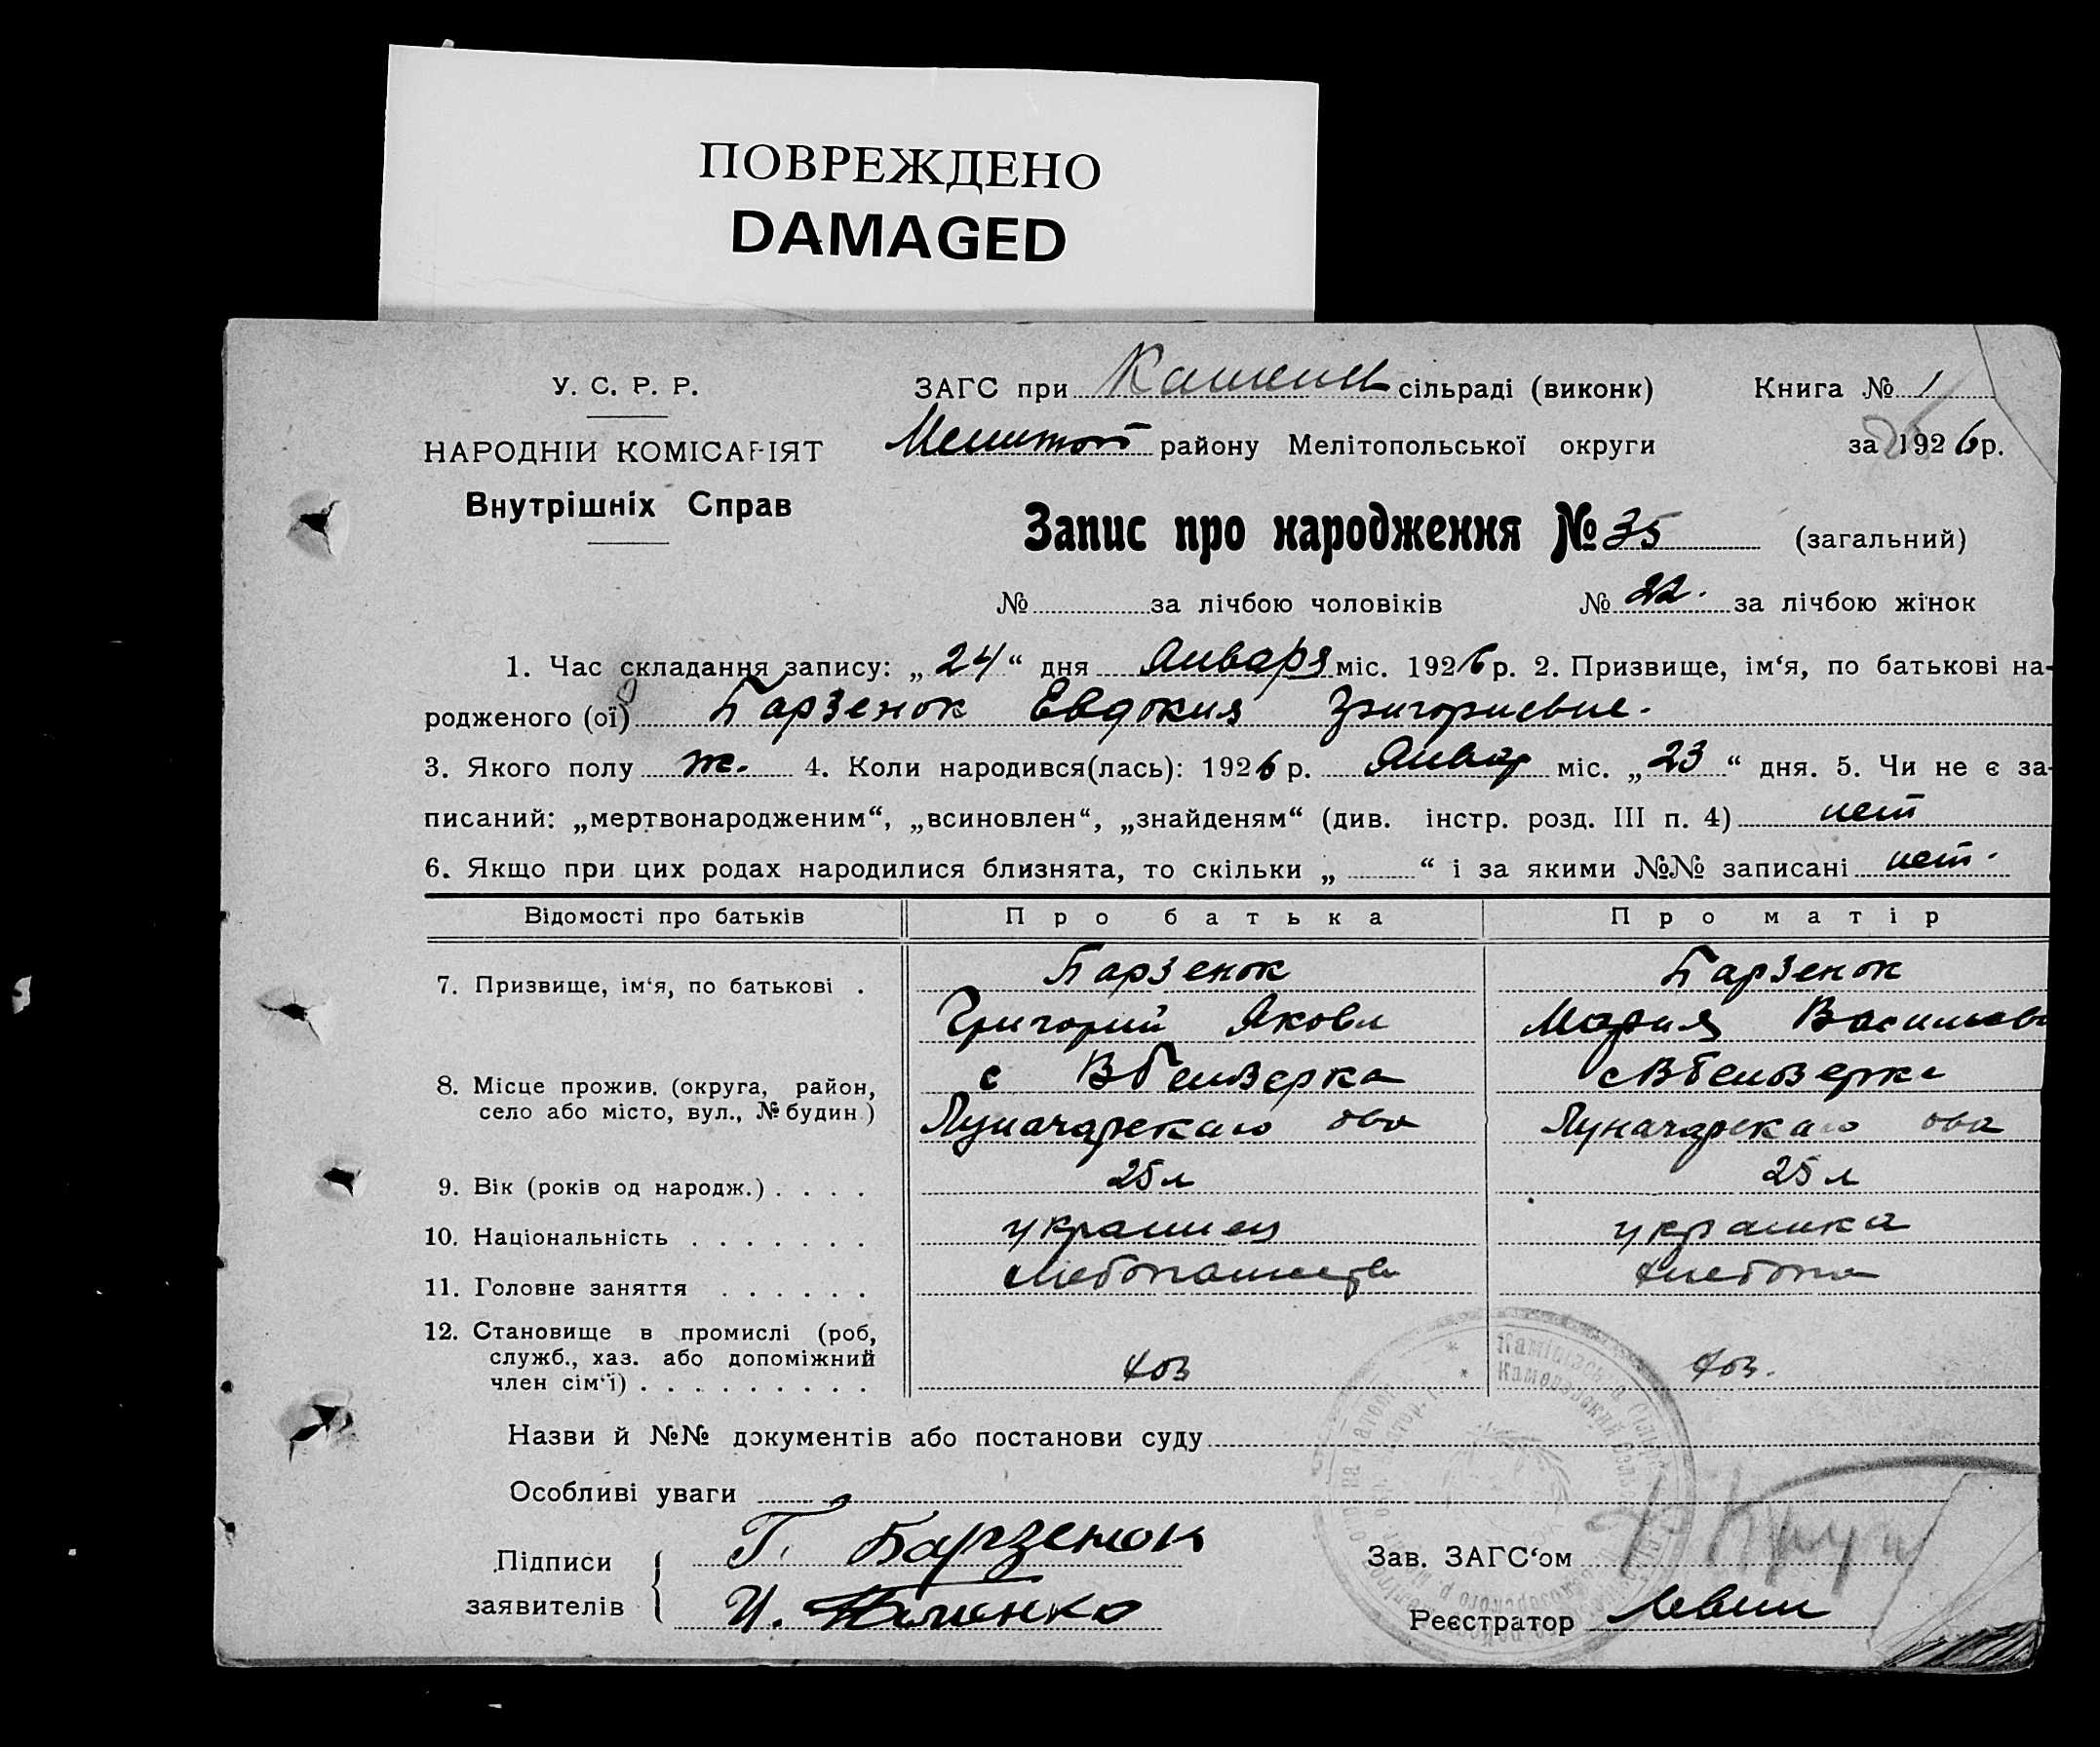 ПОВРЕЖДЕНО
DAMAGED
У. С. Р. Р.
НАРОДНІЙ КОМІСАРІЯТ
Внутрішніх Справ
ЗАГС при сільраді (виконк)
Книга № 1
району Мелітопольської округи
за 1926 р.
Запис про народження № 35 (загальний)
№ за лічбою чоловіків № 22. за лічбою жінок
1. Час складання запису: „24“ дня Января міс. 1926 р. 2. Призвище, ім‘я, по батькові на-
родженого (ої) Барзенок Евдокия Григориевне.
3. Якого полу ж. 4. Коли народився(лась): 1926 р. Январ міс. „23“ дня. 5. Чи не є за-
писаний: „мертвонародженим“, „всиновлен“, „знайденям“ (див. інстр. розд. III п. 4) нет
6. Якщо при цих родах народилися близнята, то скільки „ “ і за якими №№ записані нет.
Відомості про батьків Про батька Про матір
7. Призвище, ім‘я, по батькові . Барзенок Барзенок
Григорий Яковл Мария Василев
8. Місце прожив. (округа, район, с
село або місто, вул., № будин.) Луначарскаго ова Луначарскаго ова
9. Вік (років од народж.) . . . . 25 л 25 л
10. Національність . . . . . . . украинец украинка
11. Головне заняття . . . . . . хлебопашество хлебопа
12. Становище в промислі (роб,
служб., хаз. або допоміжний
член сім‘ї) . . . . . . . . . хоз хоз.
Назви й №№ документів або постанови суду
Особливі уваги
Підписи
заявителів
Г. Барзенок
И.
Зав. ЗАГС‘ом
Реєстратор Левин